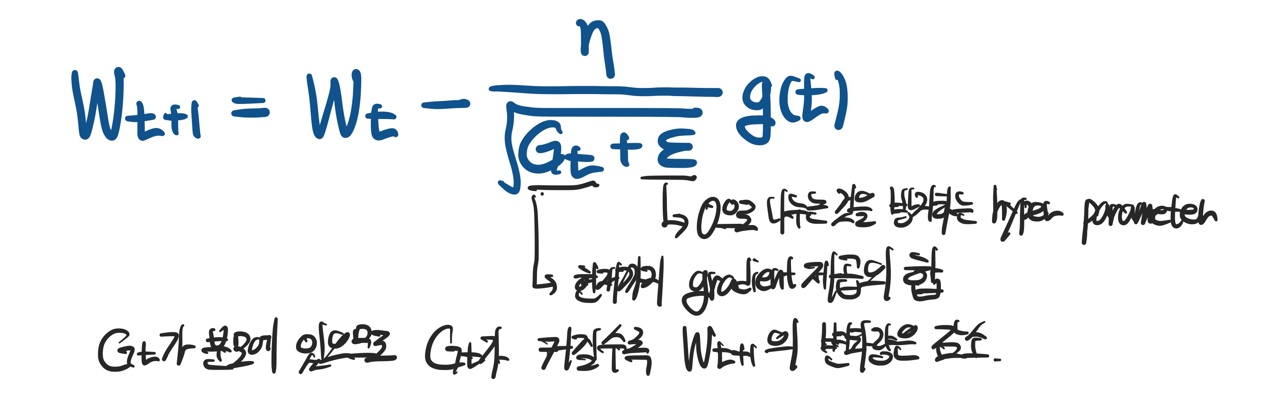 W_{t+1} = W_t - \frac{η}{\sqrt{G_t + ε}} g(t)
0으로 나누는 것을 방지하는 hyper parameter
현재까지 gradient 제곱의 합
G_t가 분모에 있으므로 G_t가 커질수록 W_{t+1}의 변화량은 감소.